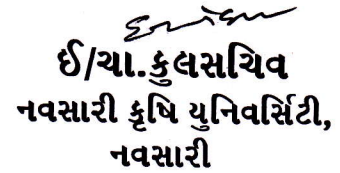 ઈ/ચા.કુલસચિવ
નવસારી કૃષિ યુનિવર્સિટી,
નવસારી